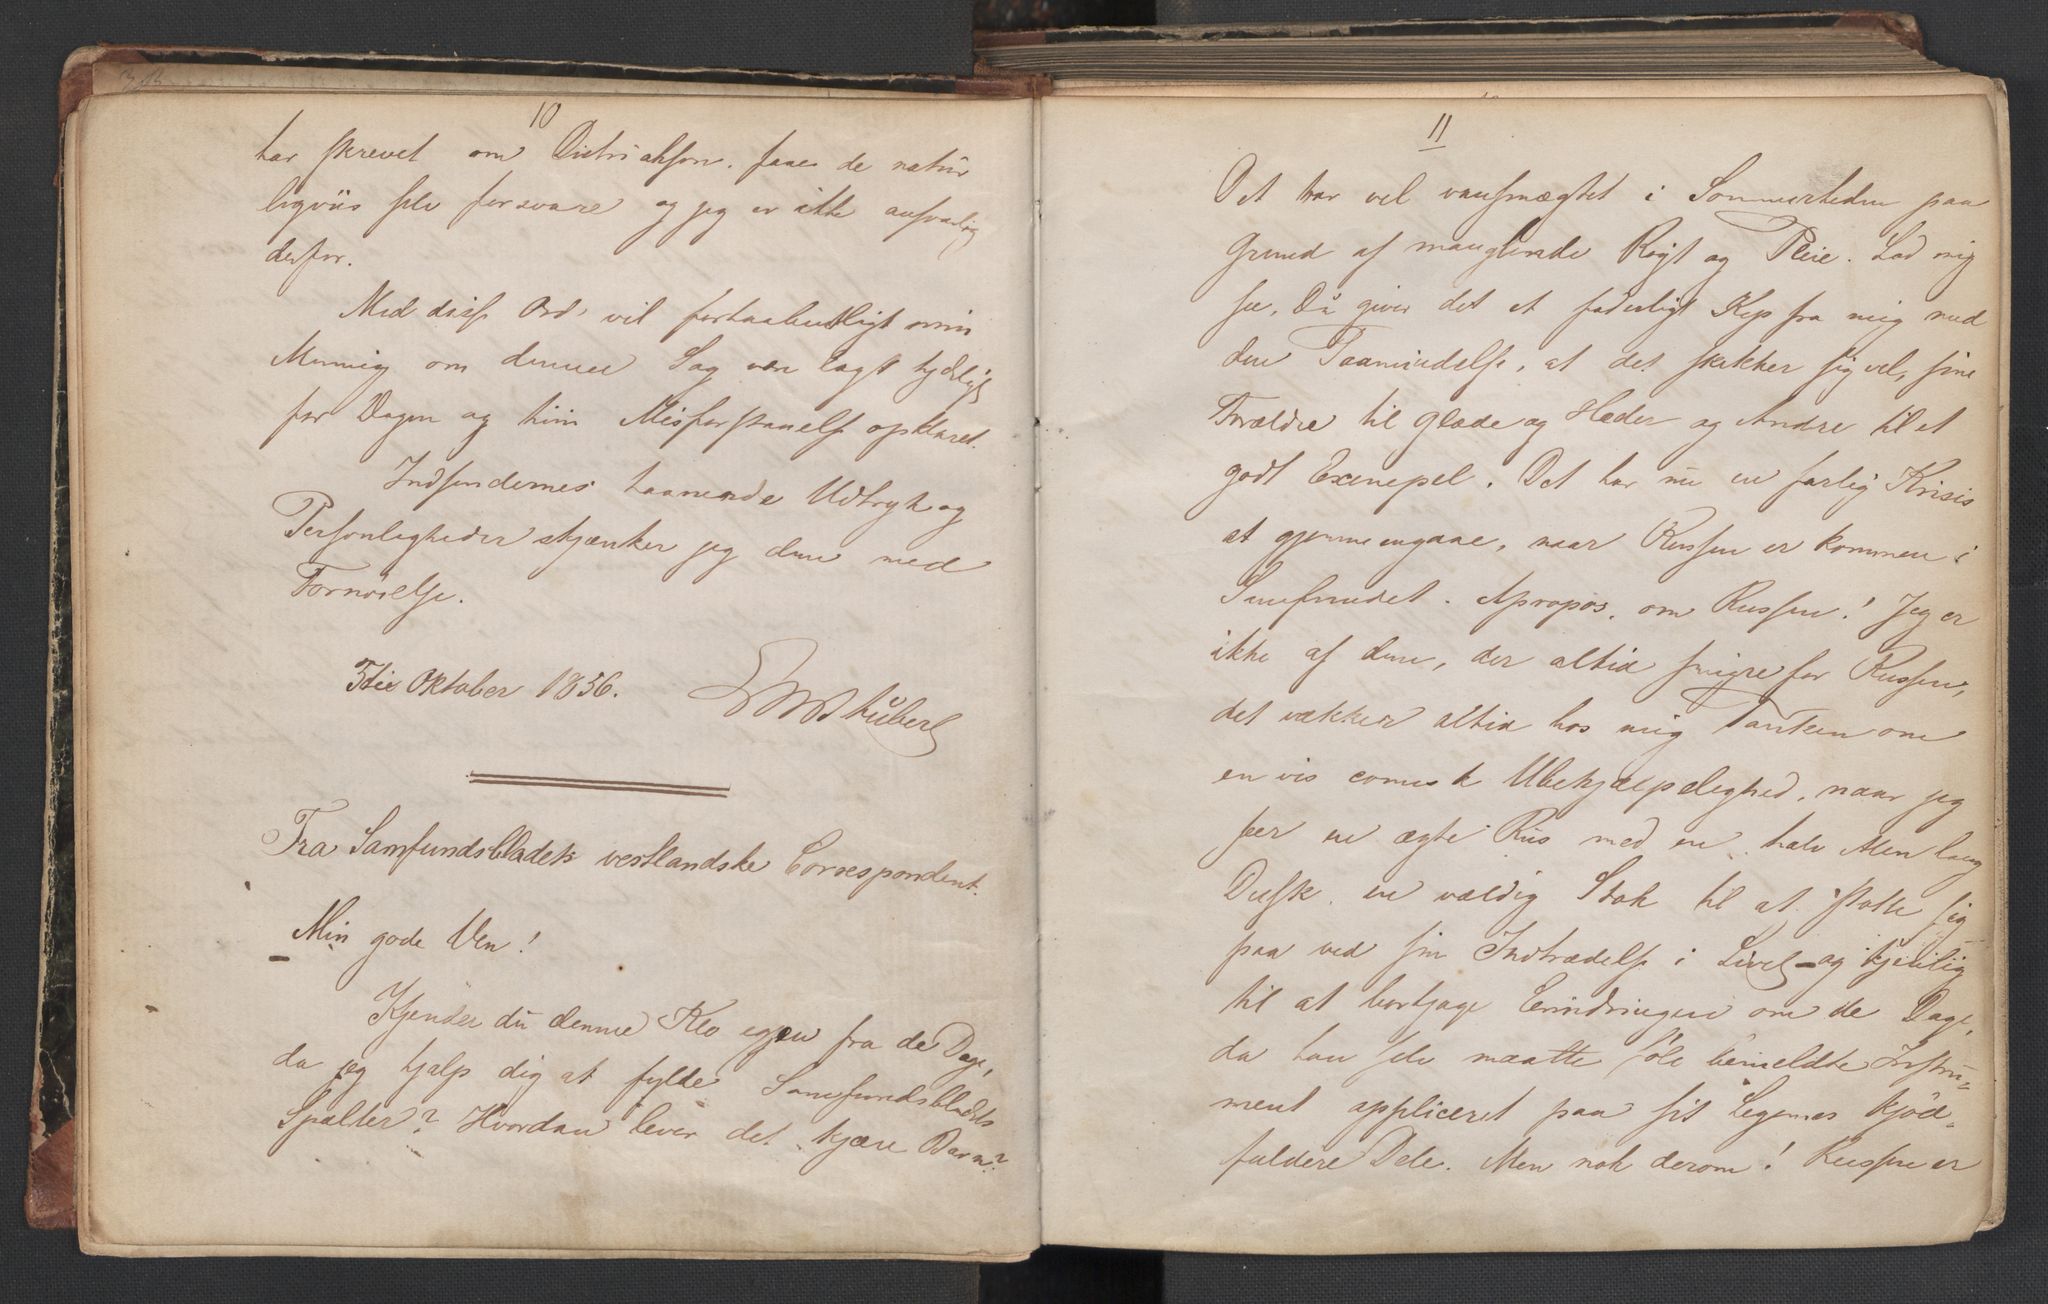 10
har skrevet om Distriktson. faae de natur
ligviis selv forsvare og jeg er ikke ansvarlig
derfor.
Med disse Ord vil forhaabentligt min
Mening om denne Sag være lagt tydeligt
for Dagen og hiin Misforstaaelse opklaret.
Indsendernes haanende Udtryk og
Personligheder skjænker jeg dem med
Fornøielse.
3die Oktober 1856.
Schubert
Fra Samfundsbladets vestlandske Correspondent.
Min gode Ven!
Kjender du denne Klo igjen fra de Dage,
da jeg hjalp dig at fylde Samfundsbladets
Spalter? Hvordan lever det kjære Barn?
11
Det har vel vansmægtet i Sommerheden paa
Grund af manglende Røgt og Pleie. Lad mig
see, Du giver det et faderligt Kys fra mig med
den Paamindelse, at det skikker sig vel, sine
Forældre til Glæde og Hæder og Andre til et
godt Exempel. Det har nu en farlig Krisis
at gjennemgaae, naar Russen er kommen i
Samfundet. Apropos, om Russen! Jeg er
ikke af dem, der altid smigre for Russen,
det vækker altid hos mig Tanken om
en vis comisk Ubehjælpelighed, naar jeg
seer en ægte Rus med en halv Alen lang
Dusk en vældig Stok til at støtte sig
paa ved sin Indtrædelse i Livet og tjenlig
til at bortjage Erindringen om de Dage,
da han selv maatte føle bemeldte Instru-
ment appliceret paa sit Legemes kjød-
fuldere Dele. Men nok derom! Russen er